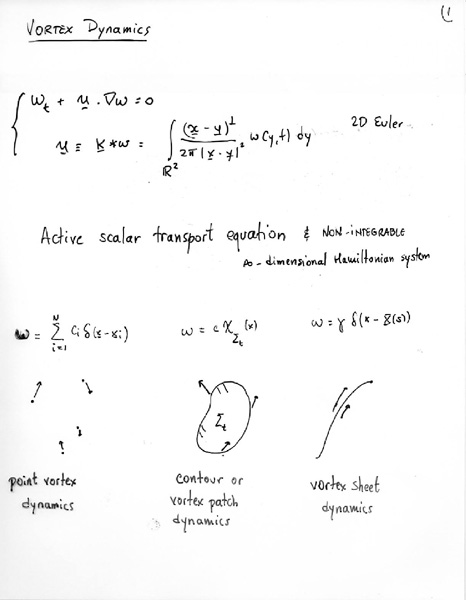 (1
VORTEX Dynamics
ω_t + u · ∇ω = 0
u = K * ω = ∫_{R^2} (x - y)^⊥ / 2π|x - y|^2 ω(y,t) dy
2D Euler
Active scalar transport equation & NON-INTEGRABLE
∞-dimensional Hamiltonian system
ω = Σ_{i=1}^{N} c_i δ(x - x_i)
ω = c χ_{Σ_t}(x)
ω = γ δ(x - z(s))
Σ_t
point vortex
dynamics
contour or
vortex patch
dynamics
vortex sheet
dynamics